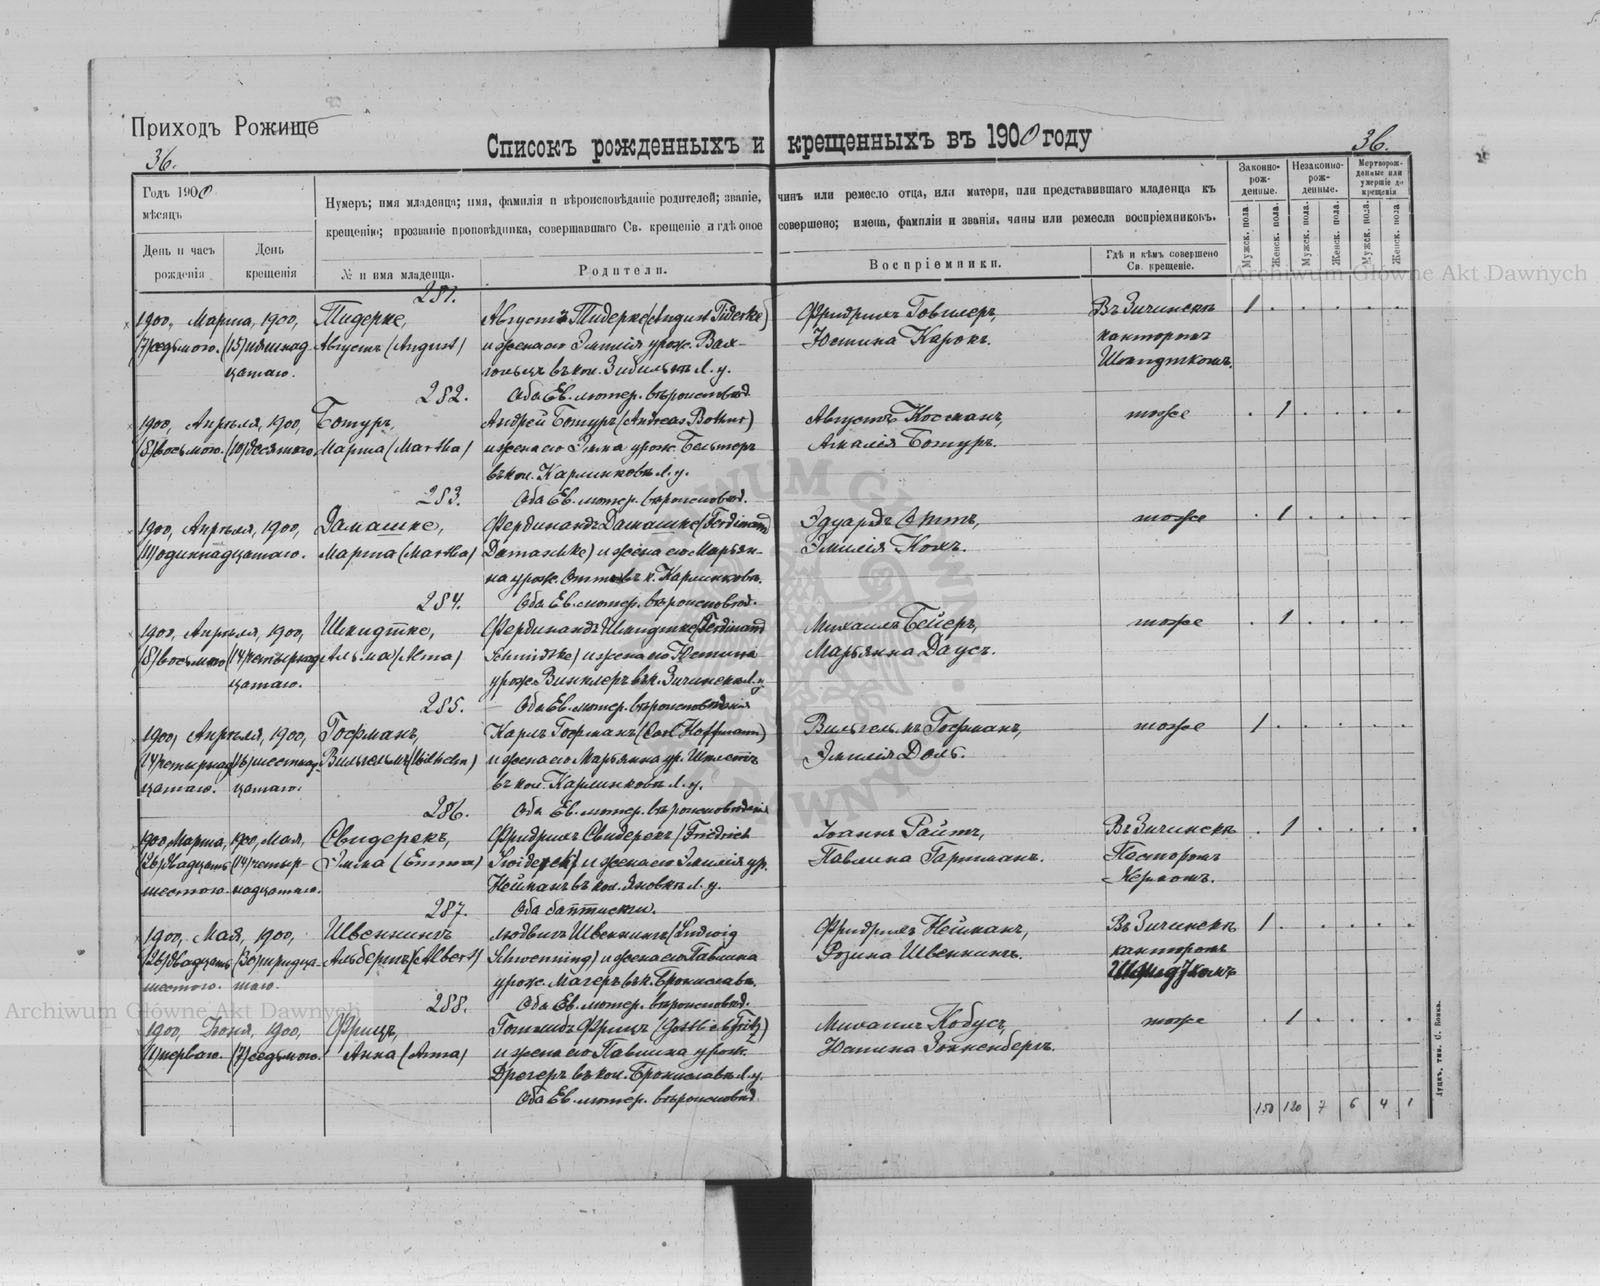 Приходъ Рожище
Списокъ рожденныхъ и крещенныхъ въ 1900 году
36.
36.
Годъ 1900
мѣсяцъ
День и часъ рожденія
День крещенія
Нумеръ; имя младенца; имя, фамилія и вѣроисповѣданіе родителей; званіе, чинъ или ремесло отца, или матери, или представившаго младенца къ
крещенію; прозваніе проповѣдника, совершавшаго Св. крещеніе и гдѣ оное совершено; имена, фамиліи и званія, чины или ремесла воспріемниковъ.
№ и имя младенца.
Родители.
Воспріемники.
Гдѣ и кѣмъ совершено Св. крещеніе.
Законно-рож-денные.
Незаконно-рож-денные.
Мертворож-денные или умершіе до крещенія
Мужск. пола.
Женск. пола.
Мужск. пола.
Женск. пола.
Мужск. пола.
Женск. пола.
Archiwum Główne Akt Dawnych
281.
1900, Марта, 1900, Тидерке, Августъ Тидерке (August Tiderke) Фридрихъ Говилеръ, Въ Зичинскѣ 1
(7) седьмого. (15) пятнад- Августъ (August) и жена его Эмилія урож. Вах- Юстина Карокъ. канторомъ
цатаго. въ кол. л. у. Шмидткомъ.
282. Оба Ев. лютер. вѣроисповѣд.
1900, Апрѣля, 1900, Ботуръ, Андрей Ботуръ (Andreas Bothur) Августъ Косманъ, тоже 1
(8) восьмого. (10) десятого. Марта (Martha) и жена его Эмма урож. Бельтеръ Амалія Ботуръ.
въ кол. Карлинковѣ л. у.
283. Оба Ев. лютер. вѣроисповѣд.
1900, Апрѣля, 1900, Дамашке, Фердинандъ Дамашке (Ferdinand Эдуардъ Оттъ, тоже 1
(11) одиннадцатаго. Марта (Martha) Damaschke) и жена его Марьян- Эмилія Кохъ.
на урож. Оттъ въ к. Карлинковѣ.
284. Оба Ев. лютер. вѣроисповѣд.
1900, Апрѣля, 1900, Шмидтке, Фердинандъ Шмидтке (Ferdinand Михаилъ Бейеръ, тоже 1
(8) восьмого (14) четырнад- Альма (Alma) Schmidtke) и жена его Юстина Марьянна Даусъ.
цатаго. урож. Винклеръ въ к. Зичинскѣ л. у.
285. Оба Ев. лютер. вѣроисповѣданія
1900, Апрѣля, 1900, Гофманъ, Карлъ Гофманъ (Carl Hoffmann) Вильгельмъ Гофманъ, тоже 1
(14) четырнад- (16) шестнад- Вильгельмъ (Wilhelm) и жена его Марьянна ур. Эмилія Доль.
цатаго. цатаго. въ кол. Карлинковѣ л. у.
286. Оба Ев. лютер. вѣроисповѣданія
1900 Марта, 1900, Мая, Свидерекъ, Фридрихъ Свидерекъ (Friedrich Іоаннъ Райтъ, Въ Зичинскѣ 1
(26) двадцать (14) четыр- Эмма (Emma) и жена его Эмилія ур. Павлина Гартманъ. Пасторомъ
шестого. надцатаго. Нейманъ въ кол. Яновкѣ л. у. Кергомъ.
287. Оба баптисты.
1900, Мая, 1900, Швеннингъ Людвигъ Швеннингъ (Ludwig Фридрихъ Нейманъ, Въ Зичинскѣ 1
(26) двадцать (30) тридца- Альбертъ (Albert) Schwenning) и жена его Павлина Розина Швеннингъ. канторомъ
шестого. таго. урож. Магеръ въ к. Брониславѣ.
288. Оба Ев. лютер. вѣроисповѣд.
1900, Іюня, 1900, Фрицъ, Готлибъ Фрицъ (Gottlieb Fritz) Михаилъ Кобусъ, тоже 1
(1) перваго. (7) седьмого. Анна (Anna) и жена его Павлина урож. Юстина Зонненбергъ.
Дрегеръ въ кол. Брониславѣ л. у.
Оба Ев. лютер. вѣроисповѣд.
150 120 7 6 4 1
Archiwum Główne Akt Dawnych
Луцкъ, тип. С. Бокка.